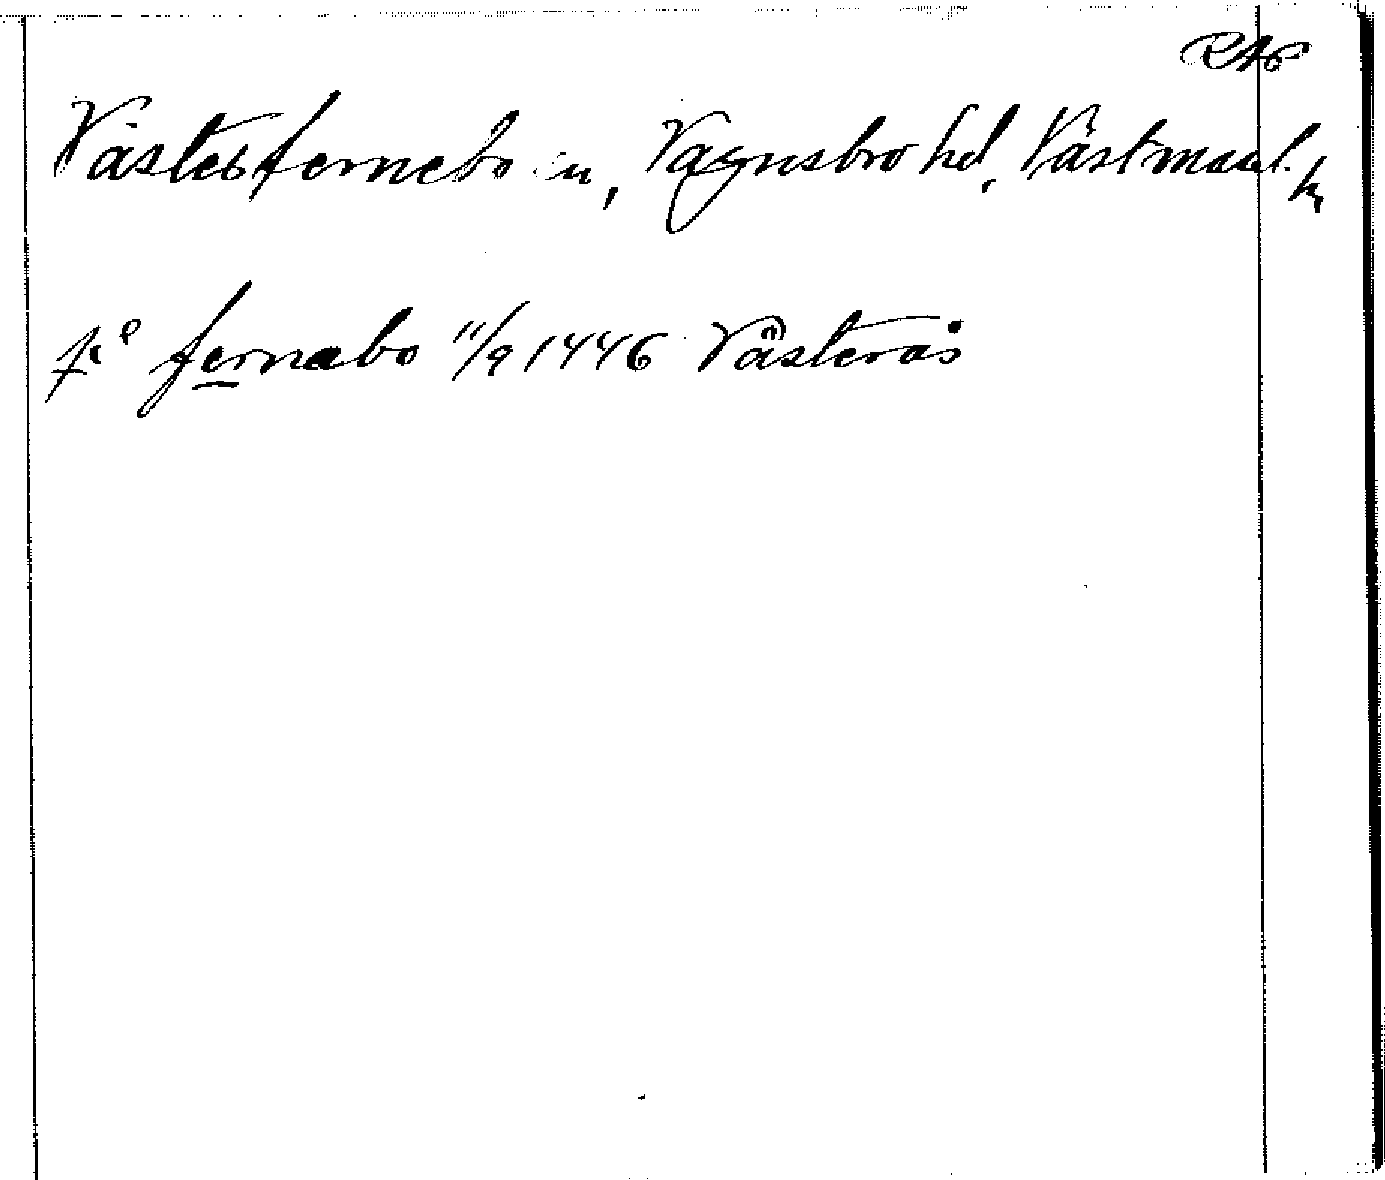 RAp
Västerfernebo sn, Vagnsbro hd, Västmanl.
på fernabo 11/9 1446 Västerås